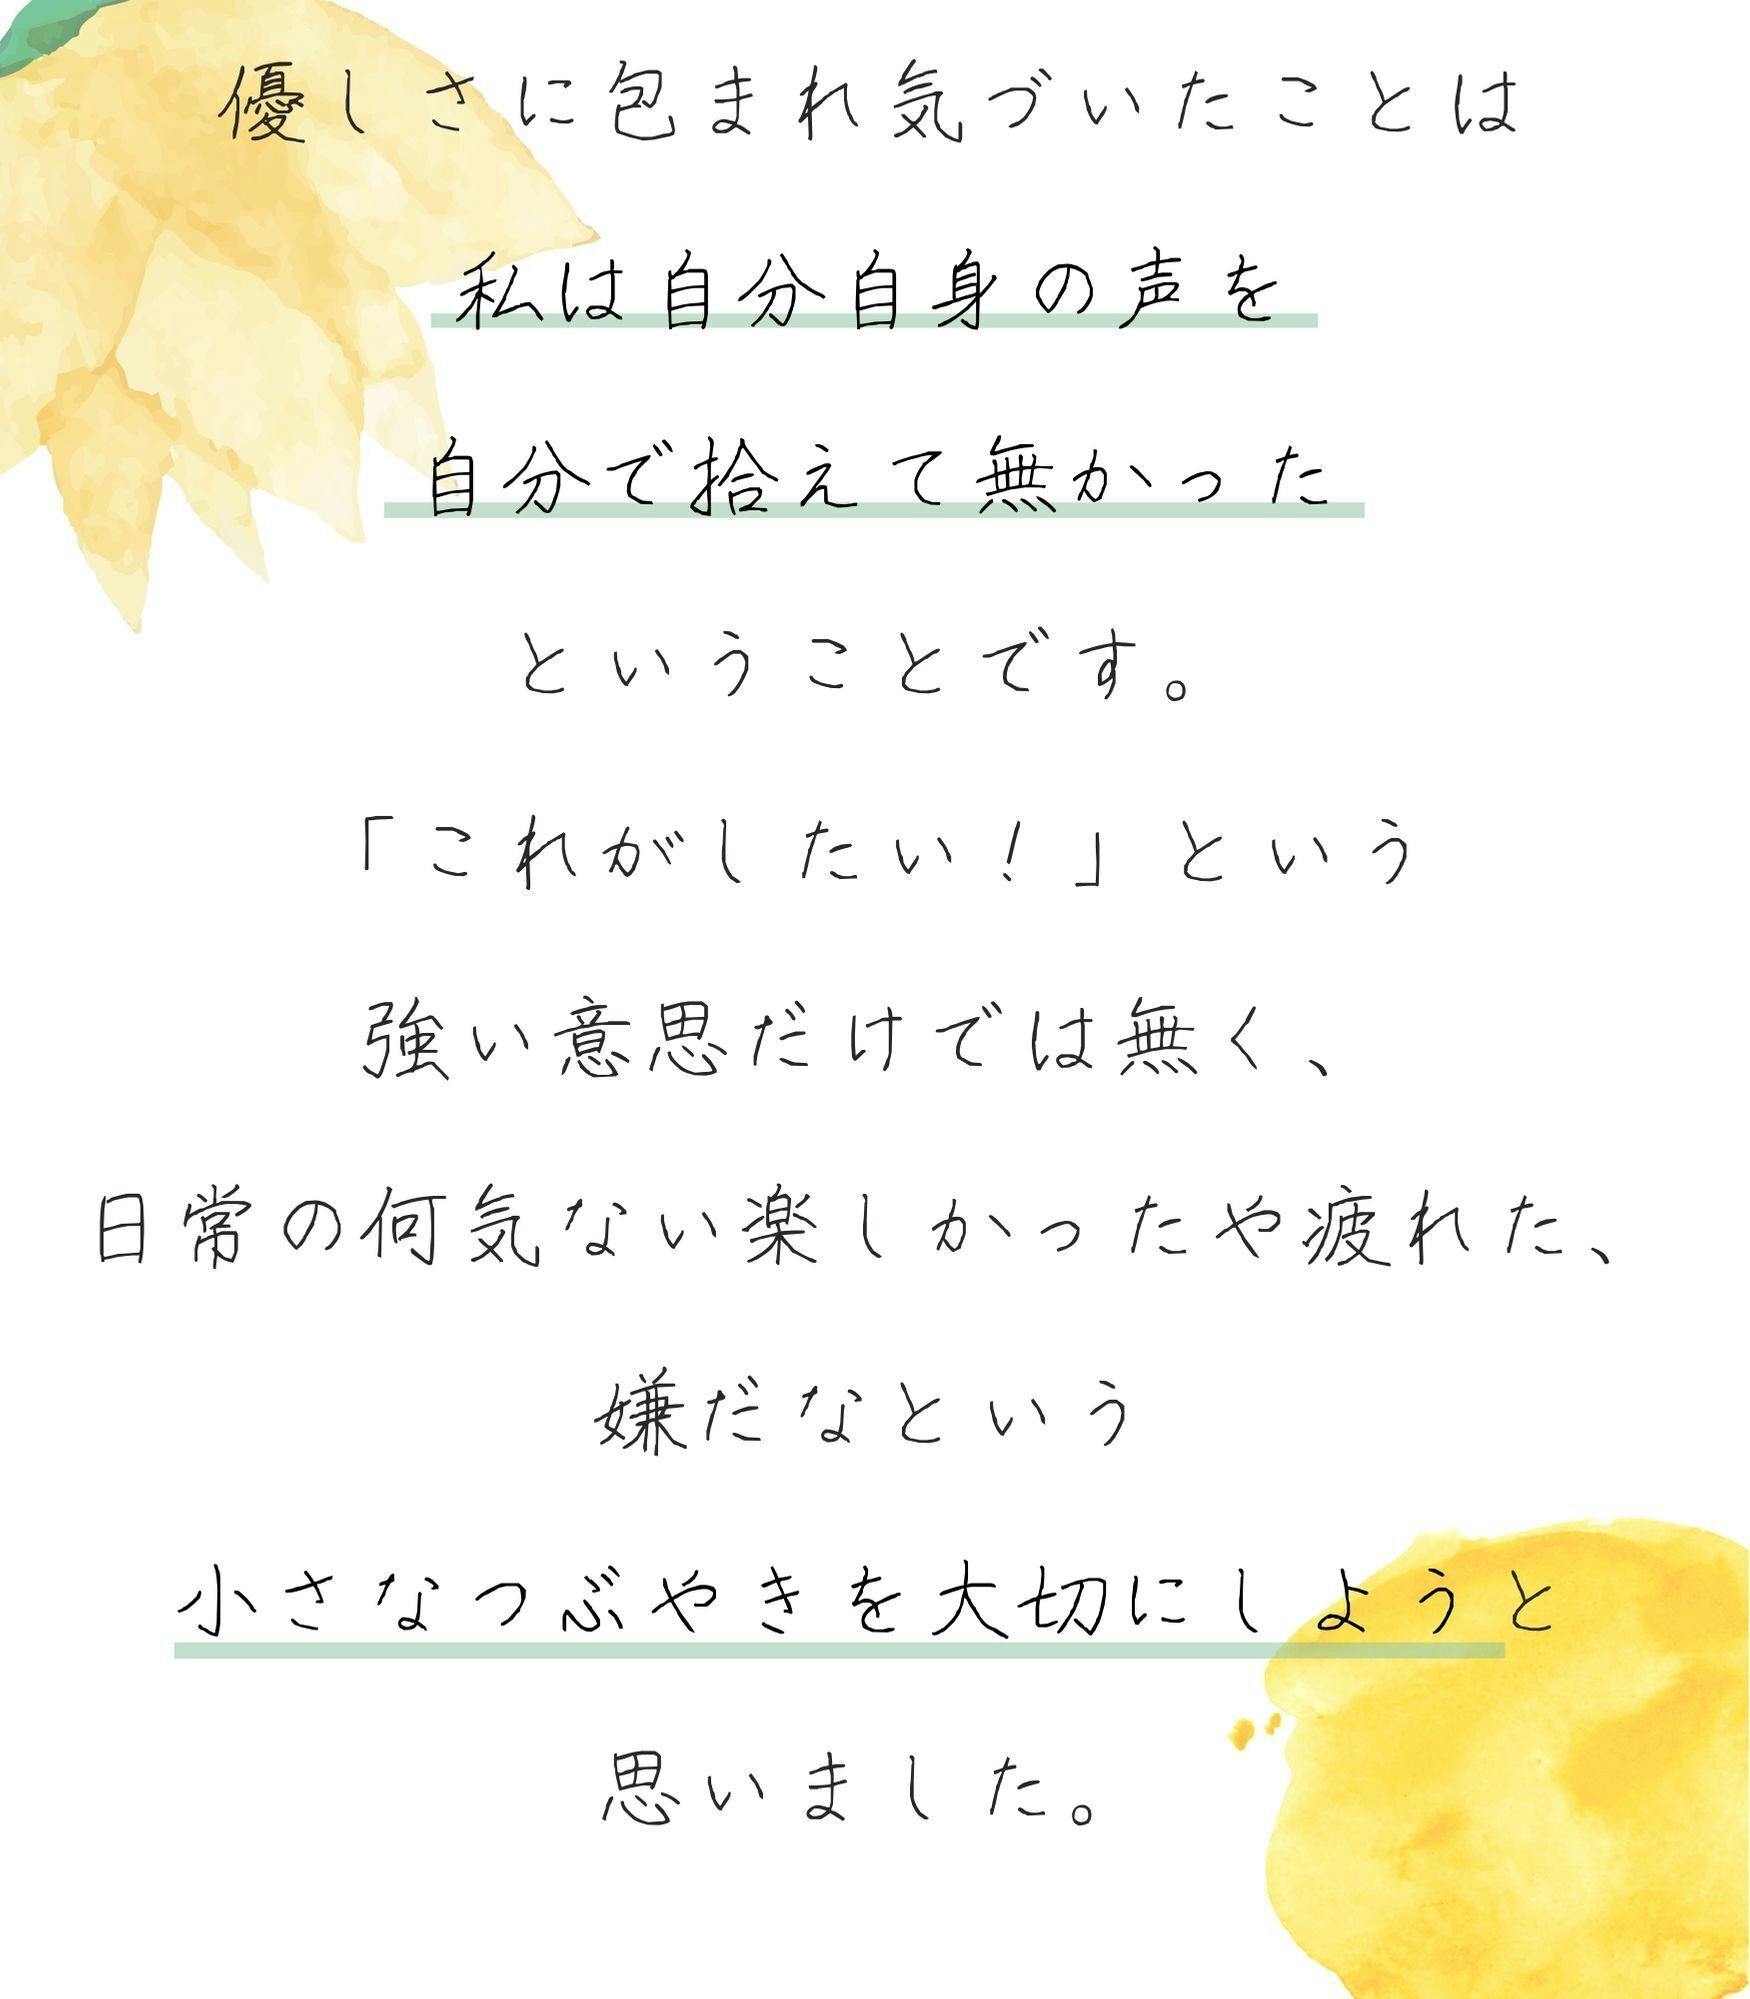 優しさに包まれ気づいたことは
私は自分自身の声を
自分で拾えて無かった
ということです。
「これがしたい！」という
強い意思だけでは無く、
日常の何気ない楽しかったや疲れた、
嫌だなという
小さなつぶやきを大切にしようと
思いました。